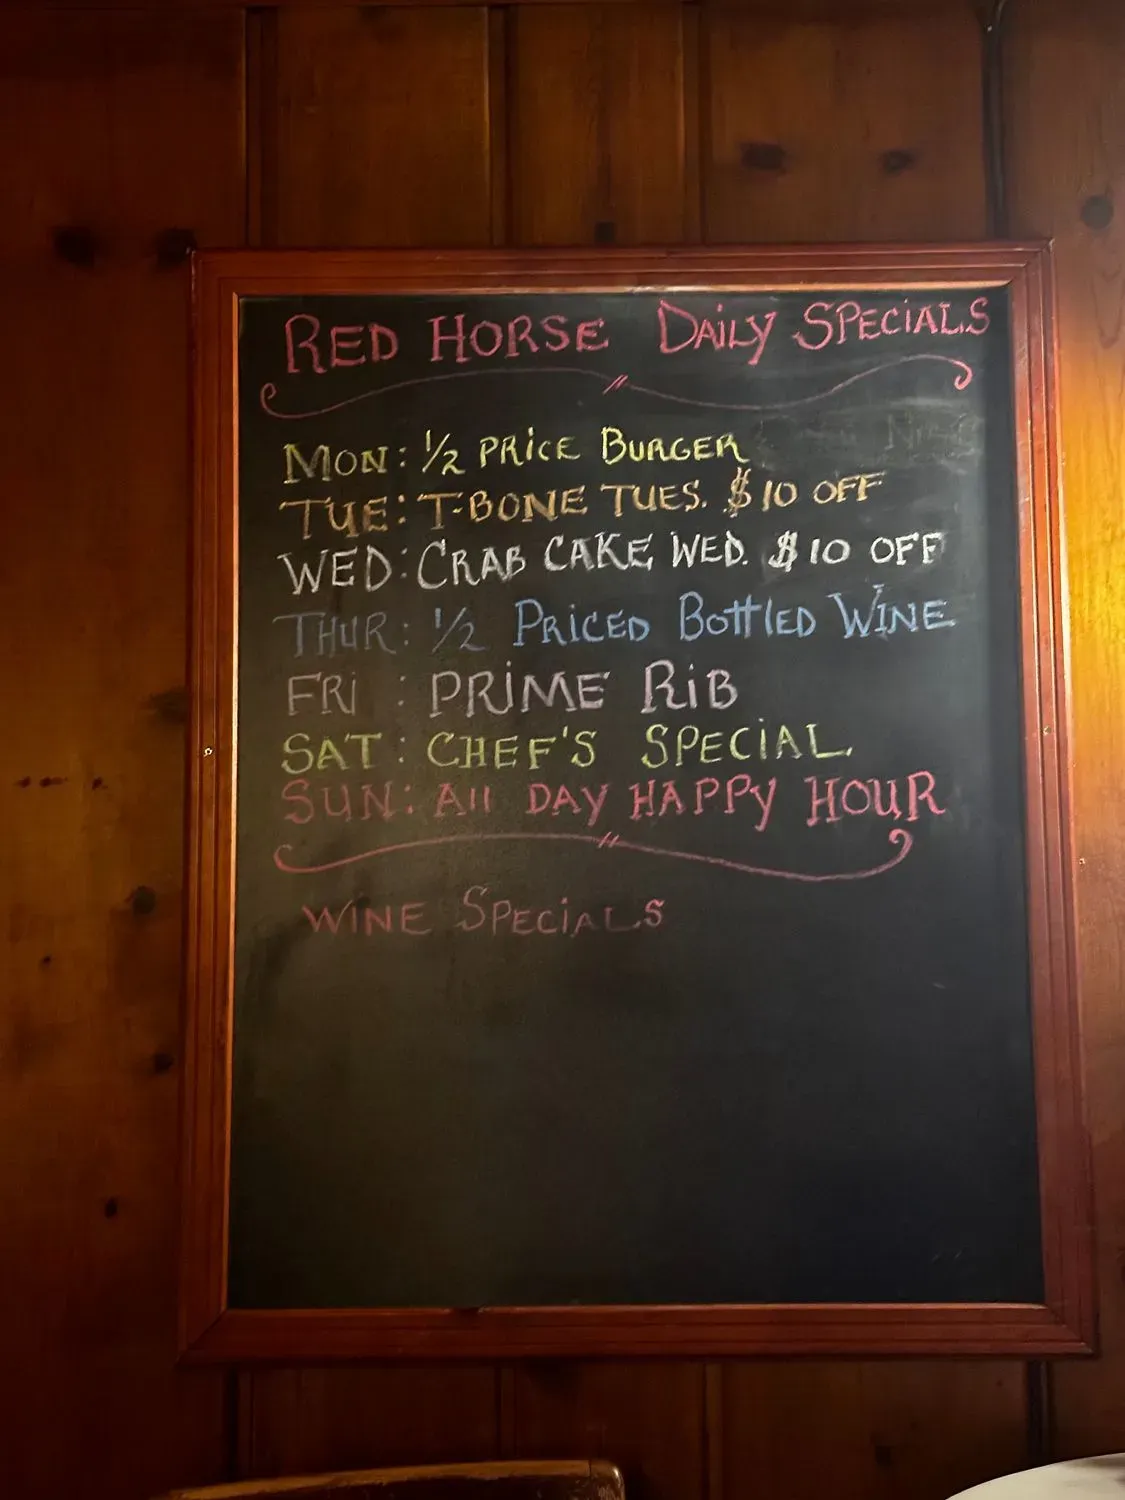 RED HORSE DAiLY SPECiALS
MON: 1/2 PRiCE BURGER
TUE: T-BONE TUES. $10 OFF
WED: CRAB CAKE WED. $10 OFF
THUR: 1/2 PRiCED BOttlED WINE
FRi : PRiME RiB
SAT: CHEF'S SPECiAL.
SUN: All DAY HAPPY HOUR
WINE SPECiALS